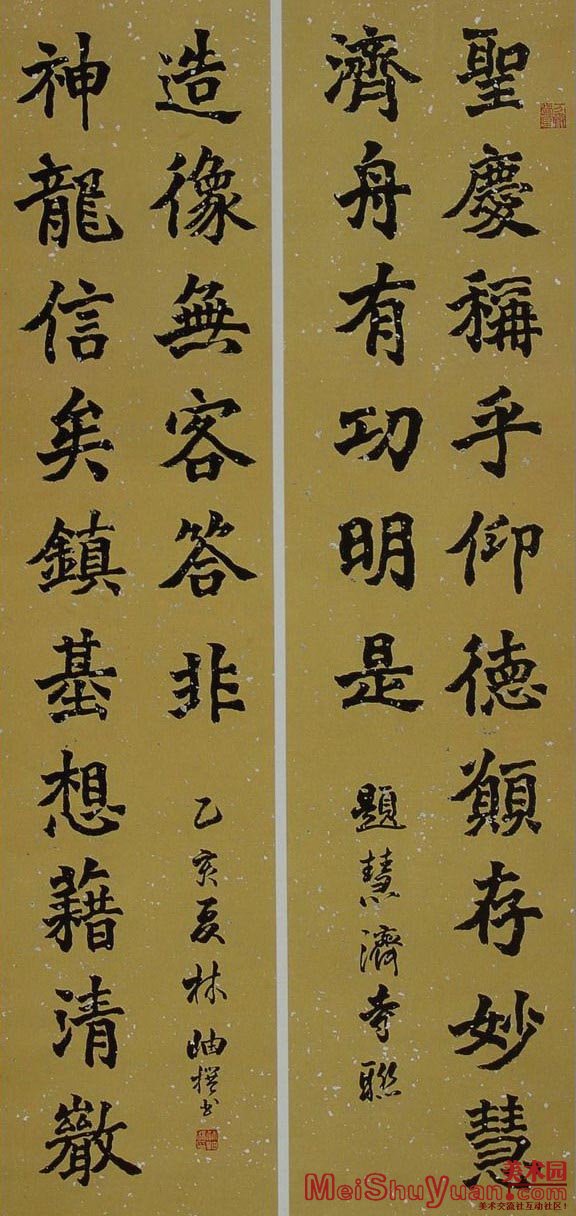 聖慶稱乎仰德願存妙慧
濟舟有功明是
題慧濟寺聯
造像無客答非
神龍信矣鎮基想藉清
乙亥夏林岫撰书
美术园
MeiShuYuan.com
美术交流社互动社区！